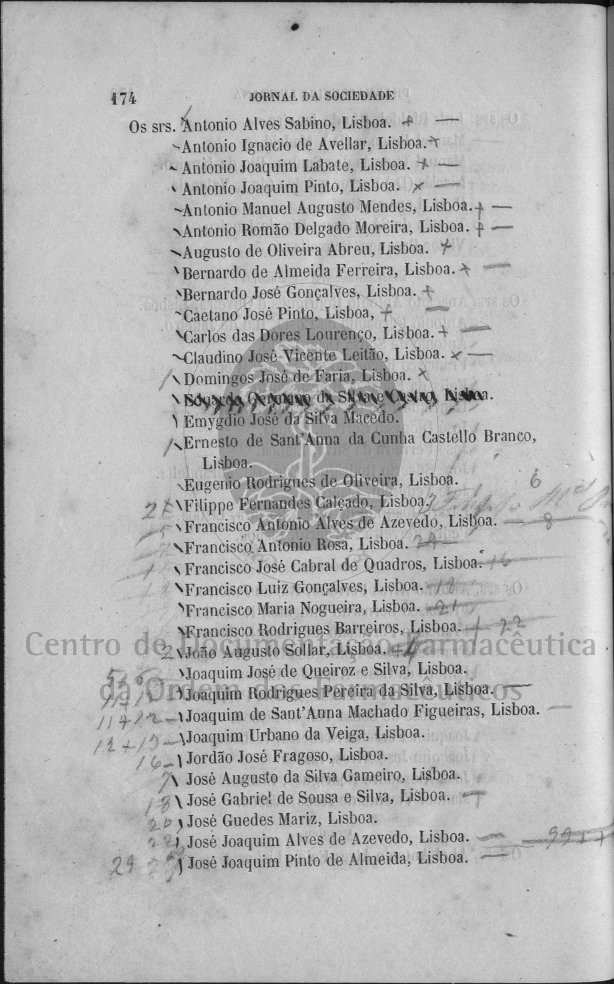 174 JORNAL DA SOCIEDADE
Os srs. Antonio Alves Sabino, Lisboa.
Antonio Ignacio de Avellar, Lisboa.
Antonio Joaquim Labate, Lisboa.
Antonio Joaquim Pinto, Lisboa.
Antonio Manuel Augusto Mendes, Lisboa.
Antonio Romão Delgado Moreira, Lisboa.
Augusto de Oliveira Abreu, Lisboa.
Bernardo de Almeida Ferreira, Lisboa.
Bernardo José Gonçalves, Lisboa.
Caetano José Pinto, Lisboa,
Carlos das Dores Lourenço, Lisboa.
Claudino José Vicente Leitão, Lisboa.
Domingos José de Faria, Lisboa.
Emygdio José da Silva Macedo.
Ernesto de Sant'Anna da Cunha Castello Branco,
Lisboa.
Eugenio Rodrigues de Oliveira, Lisboa. 6
Filippe Fernandes Calçado, Lisboa.
Francisco Antonio Alves de Azevedo, Lisboa. 8
Francisco Antonio Rosa, Lisboa.
Francisco José Cabral de Quadros, Lisboa. 16
Francisco Luiz Gonçalves, Lisboa. 18
Francisco Maria Nogueira, Lisboa. 21
Francisco Rodrigues Barreiros, Lisboa. 22
Centro de Documentação Farmacêutica
2 João Augusto Sollar, Lisboa.
Joaquim José de Queiroz e Silva, Lisboa.
da Ordem dos Farmacêuticos
Joaquim Rodrigues Pereira da Silva, Lisboa.
11+12 Joaquim de Sant'Anna Machado Figueiras, Lisboa.
Joaquim Urbano da Veiga, Lisboa.
16 Jordão José Fragoso, Lisboa.
7 José Augusto da Silva Gameiro, Lisboa.
18 José Gabriel de Sousa e Silva, Lisboa.
20 José Guedes Mariz, Lisboa.
José Joaquim Alves de Azevedo, Lisboa.
29 José Joaquim Pinto de Almeida, Lisboa.